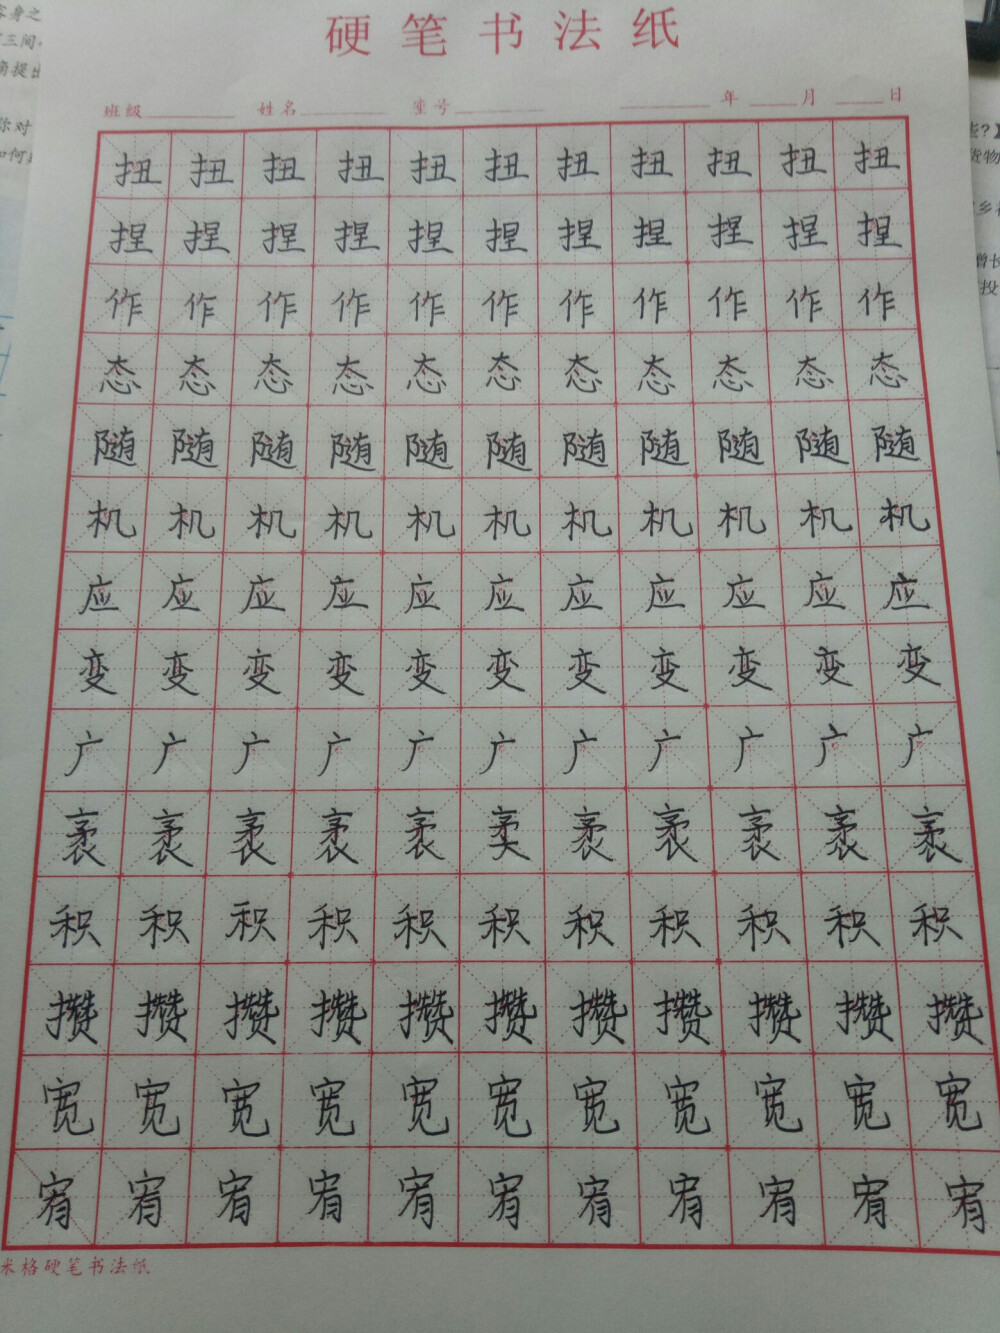 硬笔书法纸
班级 姓名 座号 年 月 日
扭扭扭扭扭扭扭扭扭扭扭
捏捏捏捏捏捏捏捏捏捏捏
作作作作作作作作作作作
态态态态态态态态态态态
随随随随随随随随随随随
机机机机机机机机机机机
应应应应应应应应应应应
变变变变变变变变变变变
广广广广广广广广广广广
袤袤袤袤袤袤袤袤袤袤袤
积积积积积积积积积积积
攒攒攒攒攒攒攒攒攒攒攒
宽宽宽宽宽宽宽宽宽宽宽
宥宥宥宥宥宥宥宥宥宥宥
米格硬笔书法纸